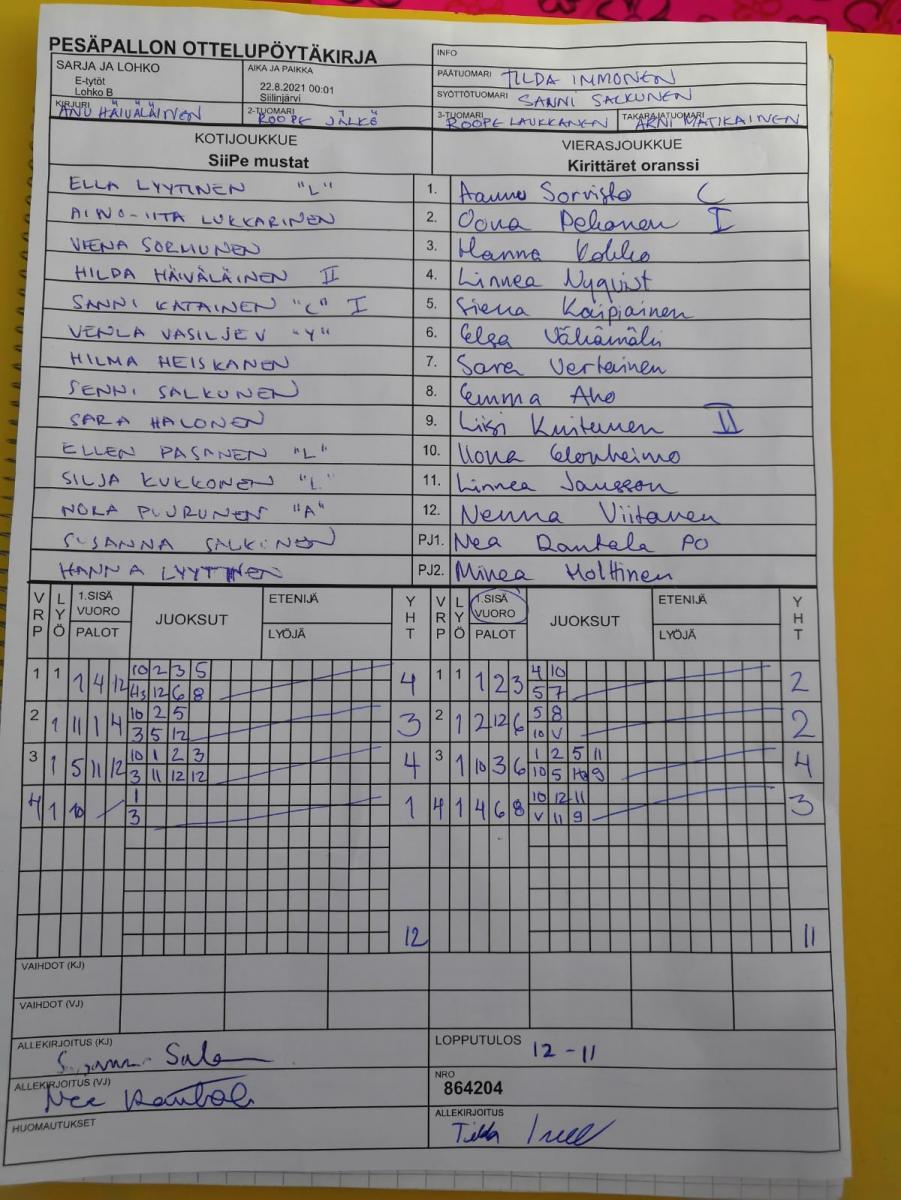 PESÄPALLON OTTELUPÖYTÄKIRJA
INFO
SARJA JA LOHKO
E-tytöt
Lohko B
AIKA JA PAIKKA
22.8.2021 00:01
Siilinjärvi
PÄÄTUOMARI TILDA IMMONEN
SYÖTTÖTUOMARI SANNI SALKUNEN
KIRJURI ANU HÄIVÄLÄINEN
2-TUOMARI ROOPE JÄLKÖ
3-TUOMARI ROOPE LAUKKANEN
TAKARAJATUOMARI ARNI MATIKAINEN
KOTIJOUKKUE
SiiPe mustat
VIERASJOUKKUE
Kirittäret oranssi
ELLA LYYTINEN "L" 1. Sorvisto C
AINO-IITA LUKKARINEN 2. Oona Pekonen I
VIENA SORMUNEN 3. Hanna Kokko
HILDA HÄIVÄLÄINEN II 4. Linnea Nyqvist
SANNI KATAINEN "C" I 5. Siena Kaipiainen
VENLA VASILJEV "Y" 6. Elsa Vähämäki
HILMA HEISKANEN 7. Sara Vertainen
SENNI SALKUNEN 8. Emma Aho
SARA HALONEN 9. Liisi Kuitunen II
ELLEN PASANEN "L" 10. Ilona Elonheimo
SILJA KUKKONEN "L" 11. Linnea Jansson
NORA PUURUNEN "A" 12. Nenna Viitanen
SUSANNA SALKUNEN PJ1. Nea Rantala PO
HANNA LYYTINEN PJ2. Minea Holttinen
VRP LYÖ 1.SISÄ VUORO PALOT JUOKSUT ETENIJÄ LYÖJÄ YHT VRP LYÖ 1.SISÄ VUORO PALOT JUOKSUT ETENIJÄ LYÖJÄ YHT
1 1 1 4 12 10 2 3 5 4 1 1 1 2 3 4 10 2
12 6 8 5 7
2 1 11 1 4 10 2 5 3 2 1 2 12 6 5 8 2
3 5 12 10 V
3 1 5 11 12 10 1 2 3 4 3 1 10 3 6 1 2 5 11 4
3 11 12 12 10 5 9
4 1 10 1 1 4 1 4 6 8 10 12 11 3
3 V 11 9
12 11
VAIHDOT (KJ)
VAIHDOT (VJ)
ALLEKIRJOITUS (KJ)
LOPPUTULOS 12-11
ALLEKIRJOITUS (VJ)
NRO
864204
HUOMAUTUKSET
ALLEKIRJOITUS
Tilda